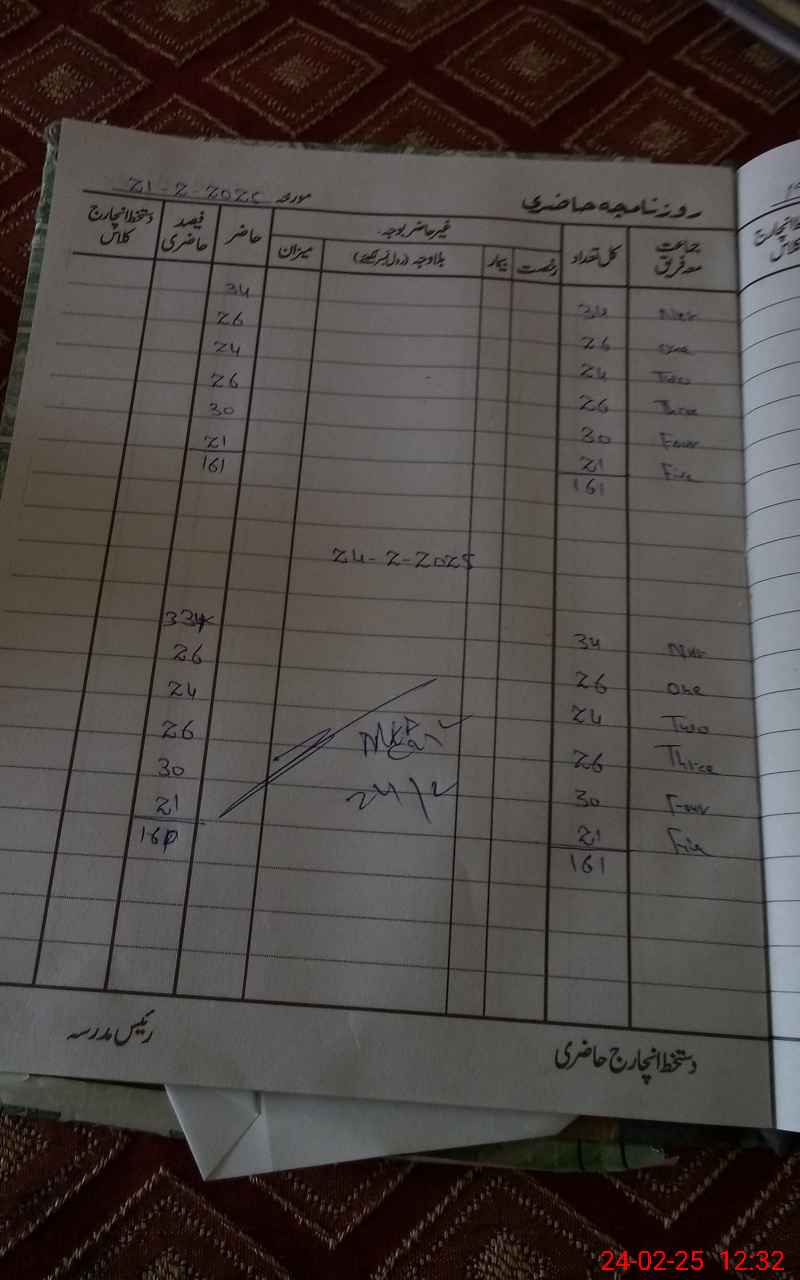 روزنامچہ حاضری مورخہ 21-2-2025
جماعت معہ فریق کل تعداد غیر حاضر بوجہ حاضر فیصد حاضری دستخط انچارج کلاس
رخصت بیمار بلاوجہ (رول نمبر لکھیئے) میزان
Nur 34 34
one 26 26
Two 24 24
Three 26 26
Four 30 30
Five 21 21
161 161
24-2-2025
Nur 34 334
One 26 26
Two 24 24
Three 26 26
Four 30 30
24/2
Five 21 21
161 160
دستخط انچارج حاضری رئیس مدرسہ
24-02-25 12:32